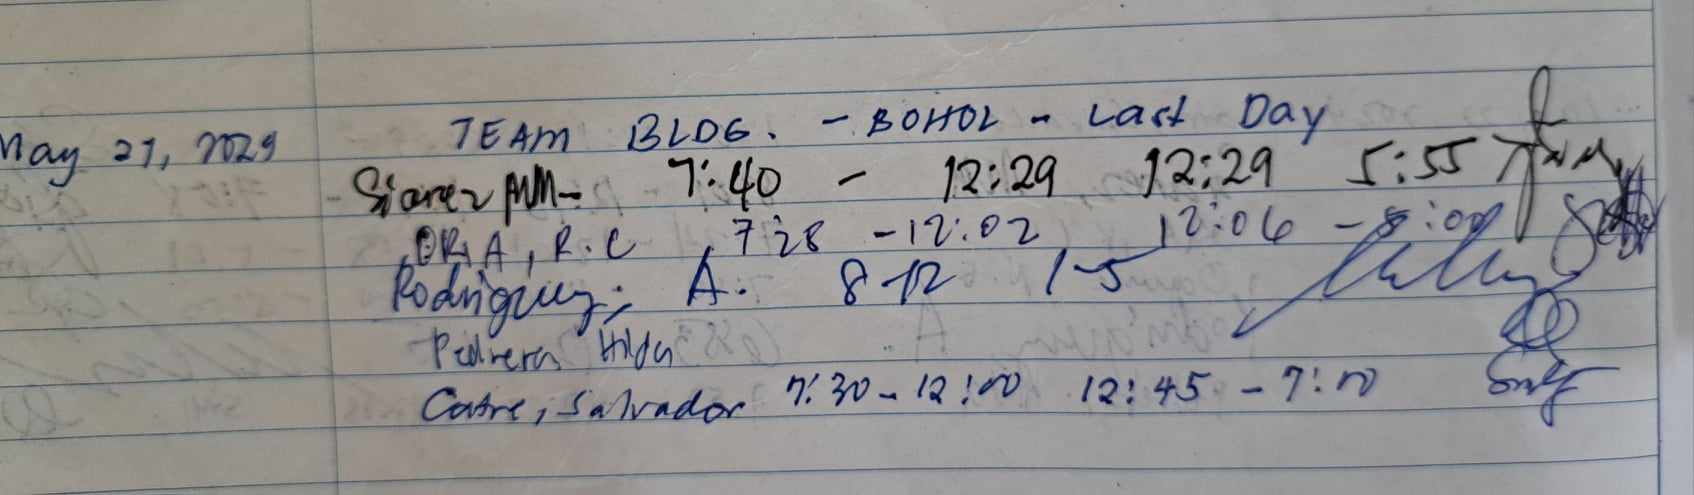 May 21, 2029 TEAM BLDG. - BOHOL - Last Day
Siarez MM - 7:40 - 12:29 12:29 5:55
ORIA, R.C 7:28 - 12:02 12:06 - 5:00
Rodriguez, A. 8-12 1-5
Pedrera Hilda
Catre, Salvador 7:30 - 12:00 12:45 - 7:00